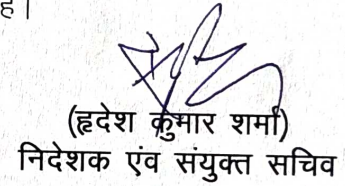 है।
(हृदेश कुमार शर्मा)
निदेशक एंव संयुक्त सचिव